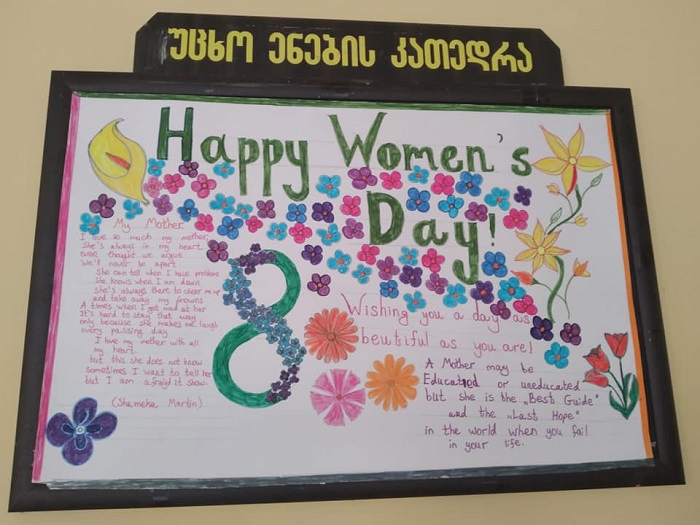 უცხო ენების კათედრა
Happy Women's
Day!
8
My Mother
I love so much my mother,
She's always in my heart
even thought we argue
We'll never be apart.
She can tell when I have problems
She knows when I am down
She's always there to cheer me up
and take away my frowns
A times when I get mad at her
It's hard to stay that way
only because she makes me laugh
every passing day
I love my mother with all
my heart
but this she does not know
Sometimes I want to tell her
but I am afraid it show.
(Shameka, Martin)
Wishing you a day as
beutiful as you are!
A Mother may be
Educated or uneducated
but she is the „Best Guide"
and the „Last Hope"
in the world when you fail
in your life.